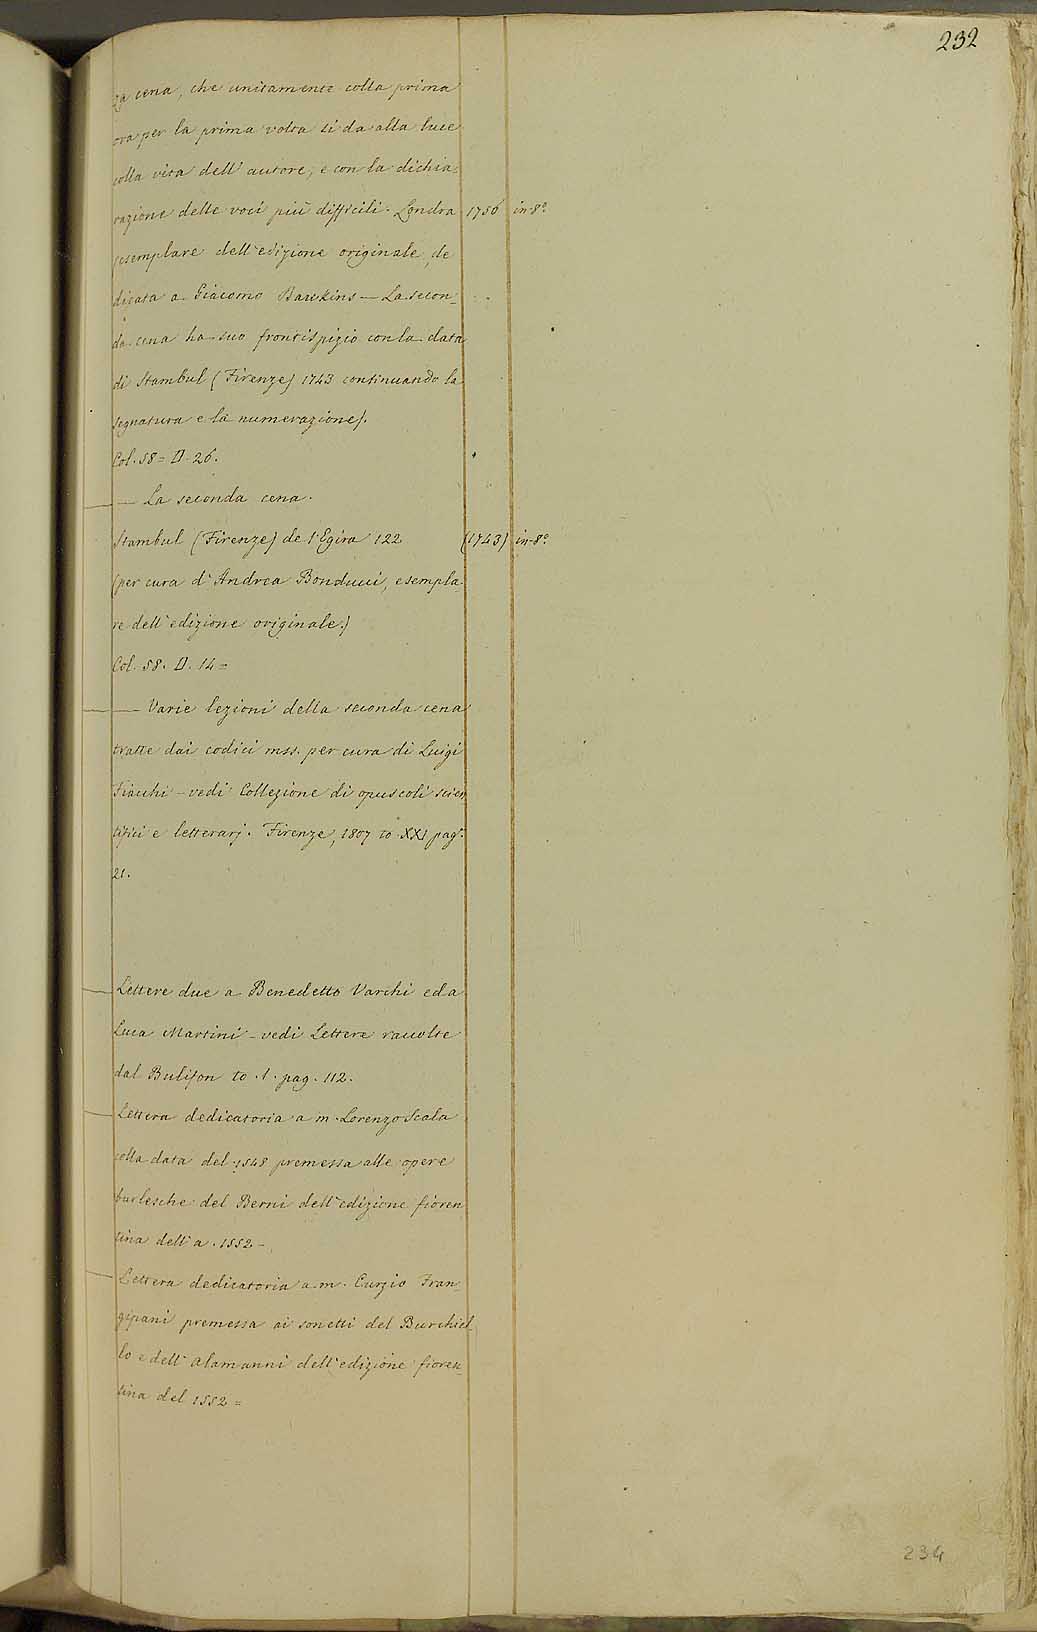 232
za cena, che unitamente colla prima
ora per la prima volta si da alla luce
colla vita dell' autore, e con la dichia=
razione delle voci più difficili. Londra 1756 in 8°
(esemplare dell' edizione originale, de
dicata a Giacomo Bawkins — La secon_
da cena ha suo frontispizio con la data
di Stambul (Firenze) 1743 continuando la
segnatura e la numerazione).
Col. 58 = D. 26.
— La seconda cena.
Stambul (Firenze) de l'Egira 122 (1743) in-8°
(per cura d'Andrea Bonducci, esempla_
re dell' edizione originale.)
Col. 58. D. 14 =
— Varie lezioni della seconda cena
tratte dai codici mss. per cura di Luigi
Fiacchi - vedi Collezione di opuscoli scien
tifici e letterarj. Firenze, 1807 to XXI pag.
21.
— Lettere due a Benedetto Varchi ed a
Luca Martini - vedi Lettere raccolte
dal Bulifon to. 1. pag. 112.
— Lettera dedicatoria a m. Lorenzo Scala
colla data del 1548 premessa alle opere
burlesche del Berni dell' edizione fioren
tina dell' a. 1552 -
— Lettera dedicatoria a m. Curzio Fran_
gipani premessa ai sonetti del Burchiel_
lo e dell' alamanni dell' edizione fioren_
tina del 1552 =
234